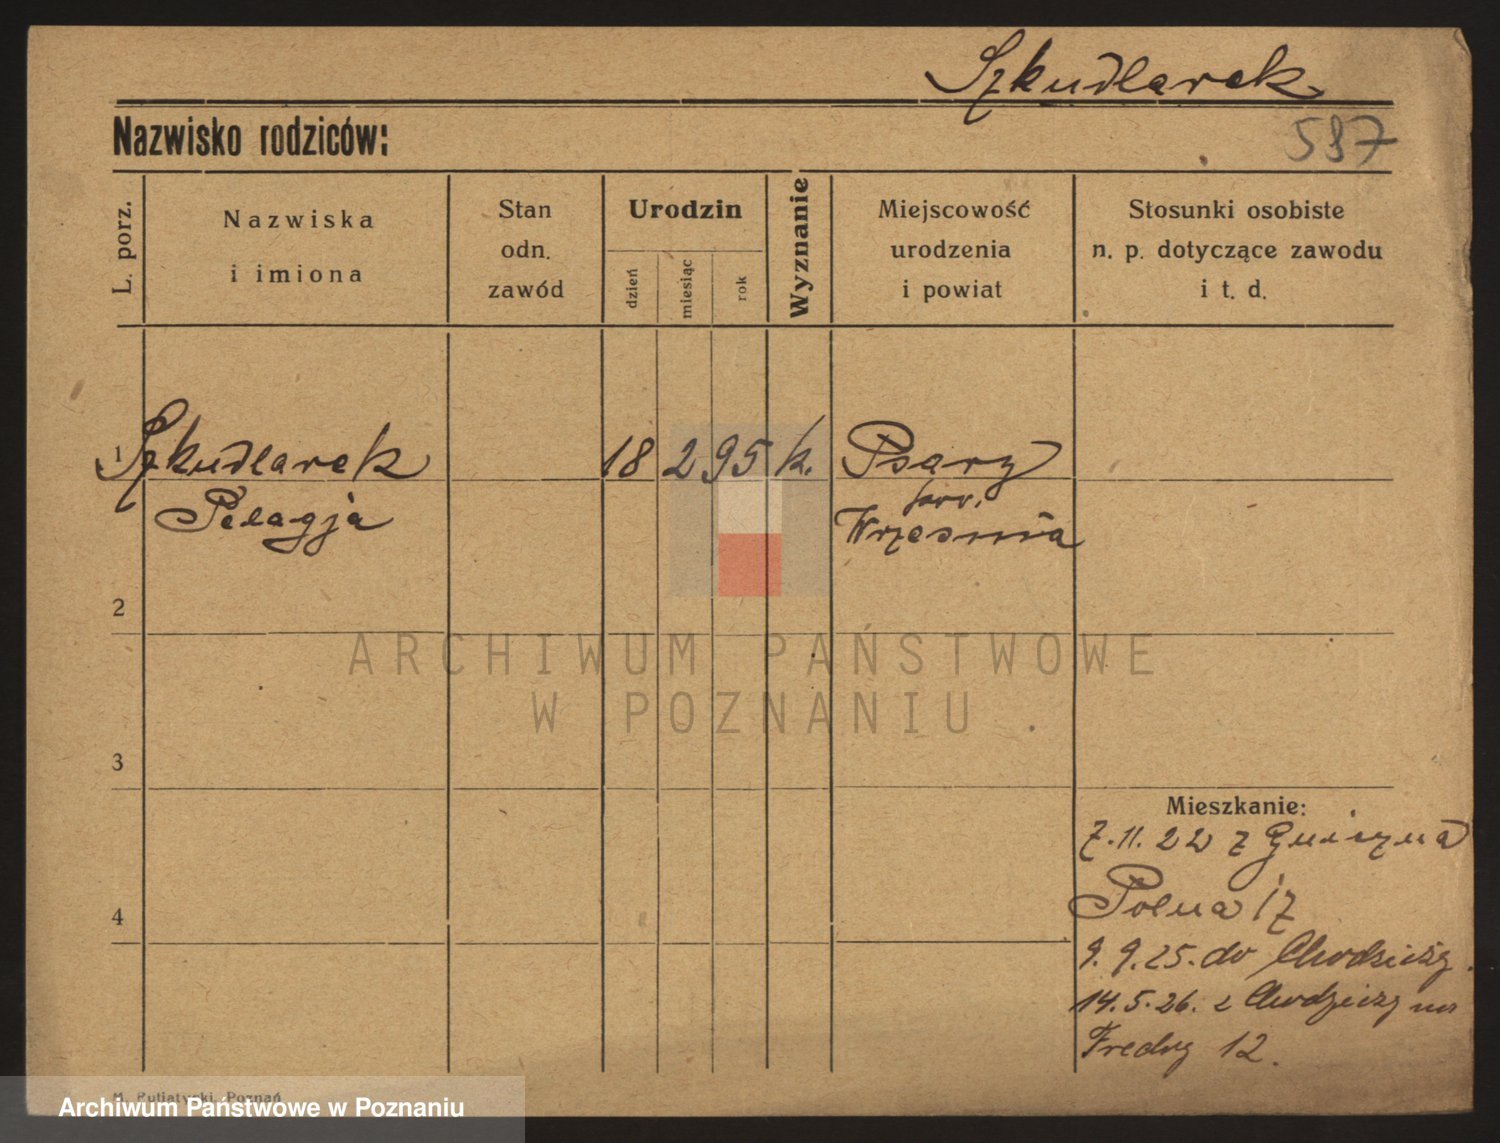 Szkudlarek
Nazwisko rodziców:
587
L. porz.
Nazwiska
i imiona
Stan
odn.
zawód
Urodzin
dzień
miesiąc
rok
Wyznanie
Miejscowość
urodzenia
i powiat
Stosunki osobiste
n. p. dotyczące zawodu
i t. d.
1
Szkudlarek
18 2 95 k. Psary
Pelagja
Września
2
ARCHIWUM PAŃSTWOWE
W POZNANIU
3
Mieszkanie:
7.11.22 z Gniezna
Polna 17
4
9.9.25. do Chodzieży.
14.5.26. z Chodzieży na
Fredry 12.
Poznań
Archiwum Państwowe w Poznaniu